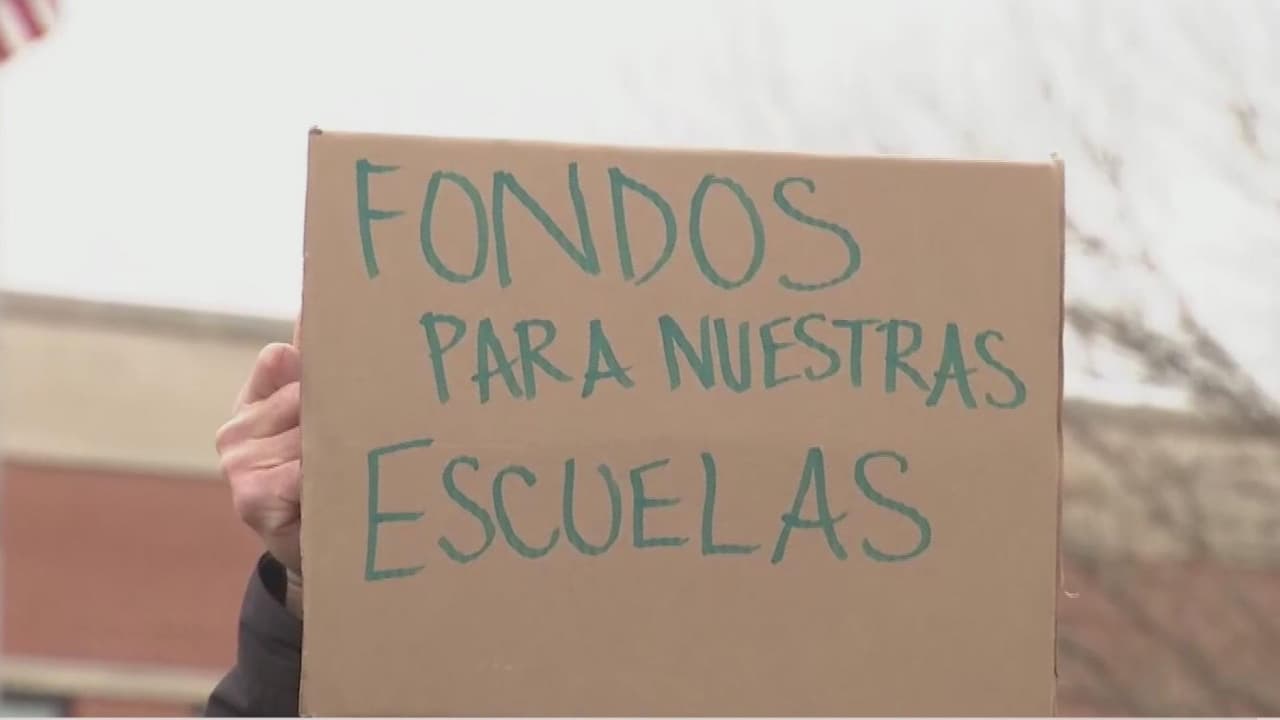 FONDOS
PARA NUESTRAS
ESCUELAS